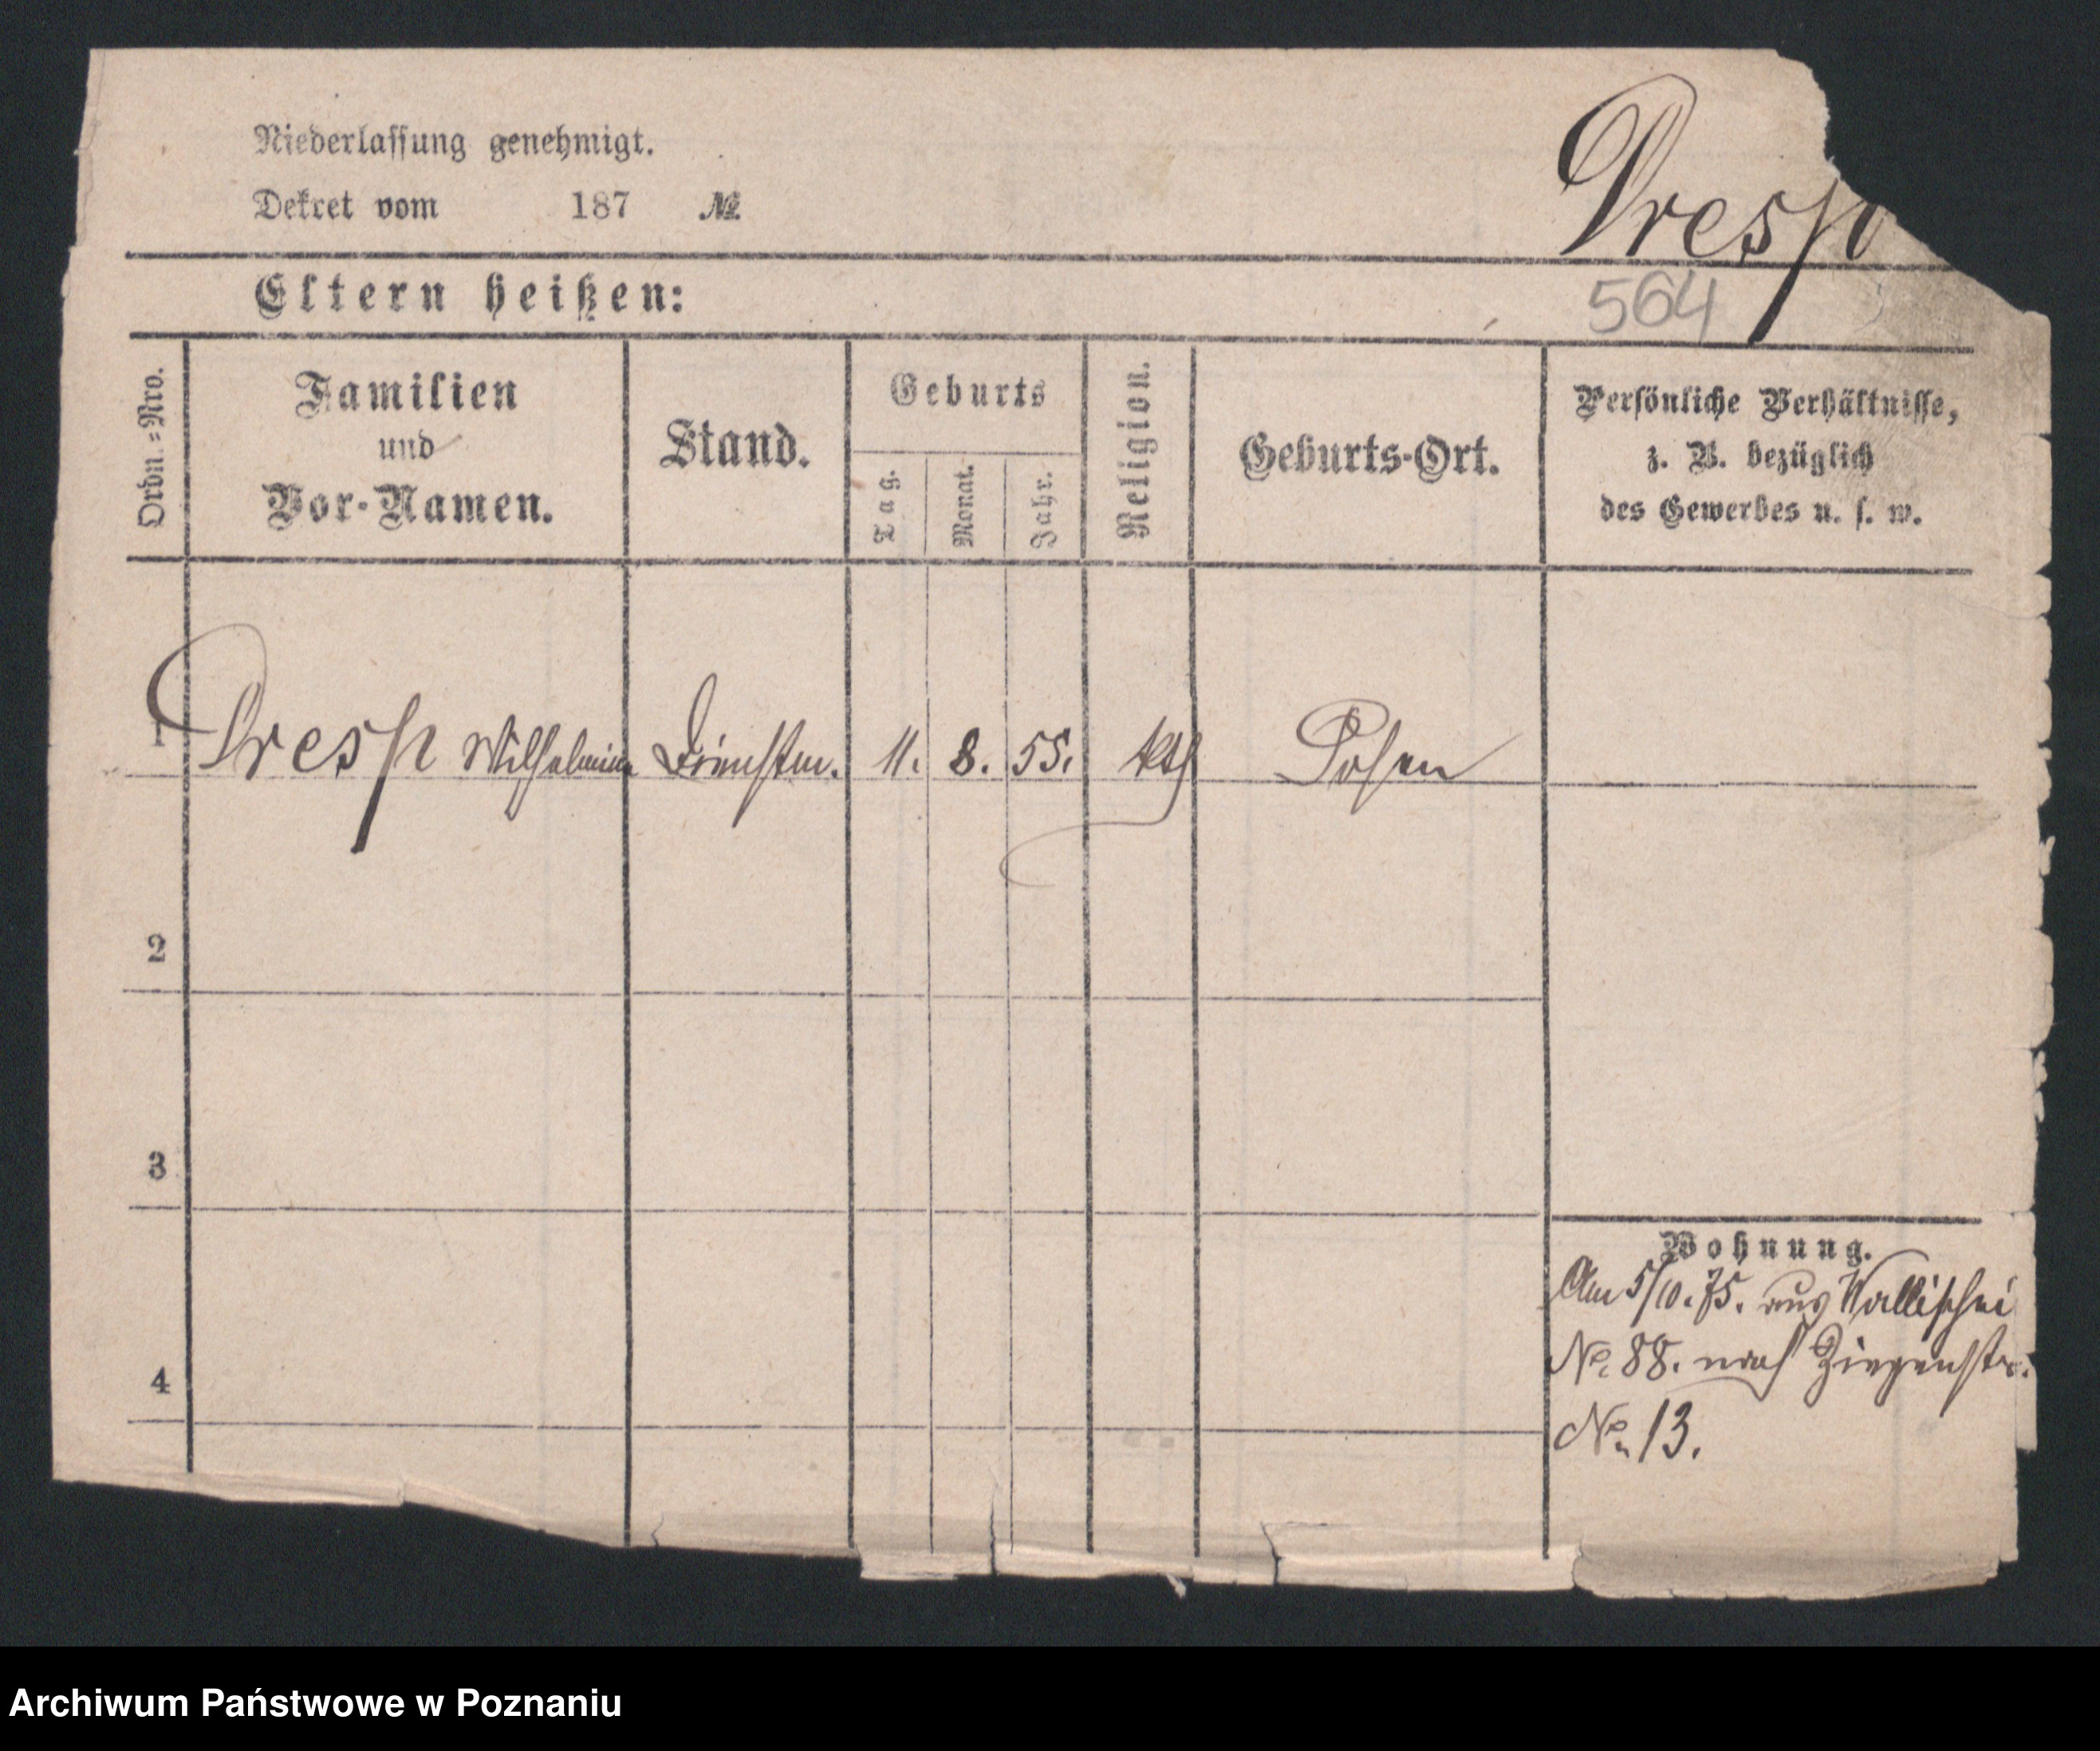 Niederlassung genehmigt.
Dekret vom 187 №
Dresp
Eltern heißen:
564
Ordn.=Nro.
Familien
und
Vor-Namen.
Stand.
Geburts
Tag.
Monat.
Jahr.
Religion.
Geburts-Ort.
Persönliche Verhältnisse,
z. B. bezüglich
des Gewerbes u. s. w.
1 Dresp Wilhelmine 11. 8. 55. kth Posen
2
3
4
Wohnung.
Am 5/10.75. aus Wallischei
No. 88. nach Ziegenstr.
No. 13.
Archiwum Państwowe w Poznaniu